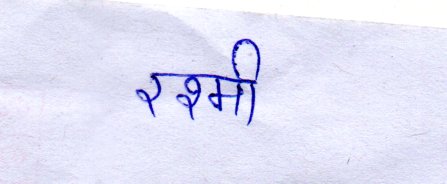 रश्मी